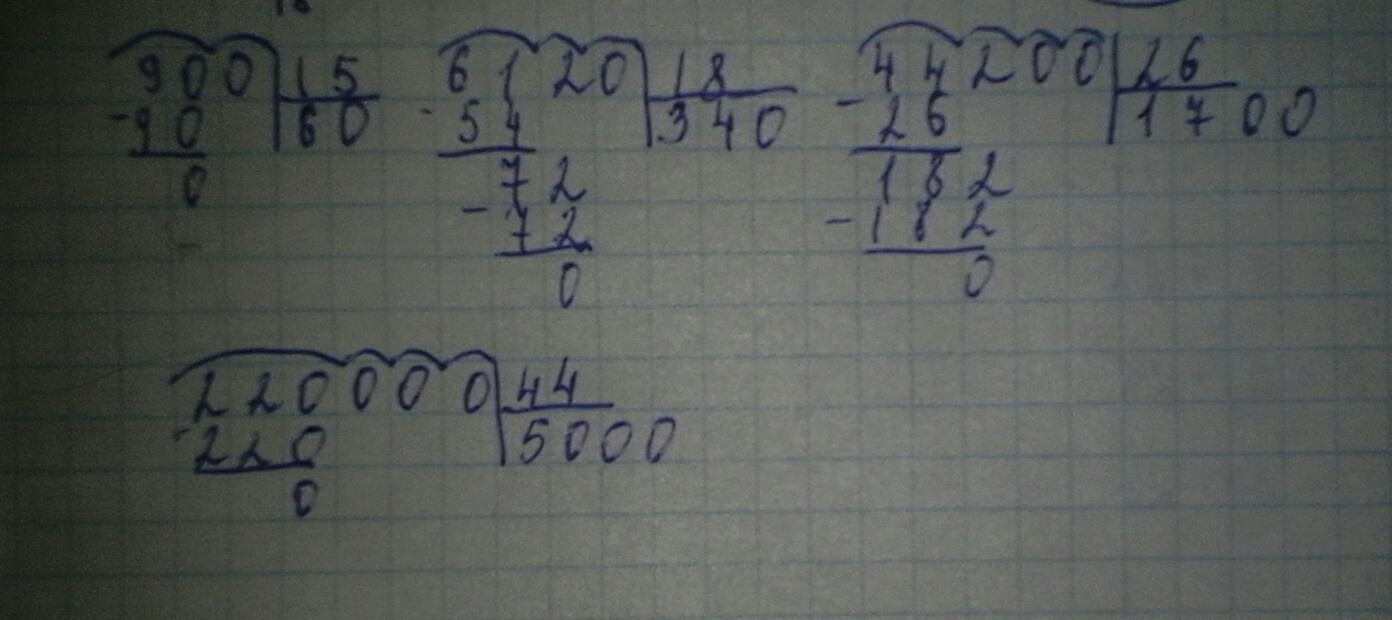 900 15 6120 18 44200 26
-90 60 -54 340 -26 1700
0 72 182
-72 -182
0 0
220000 44
-220 5000
0